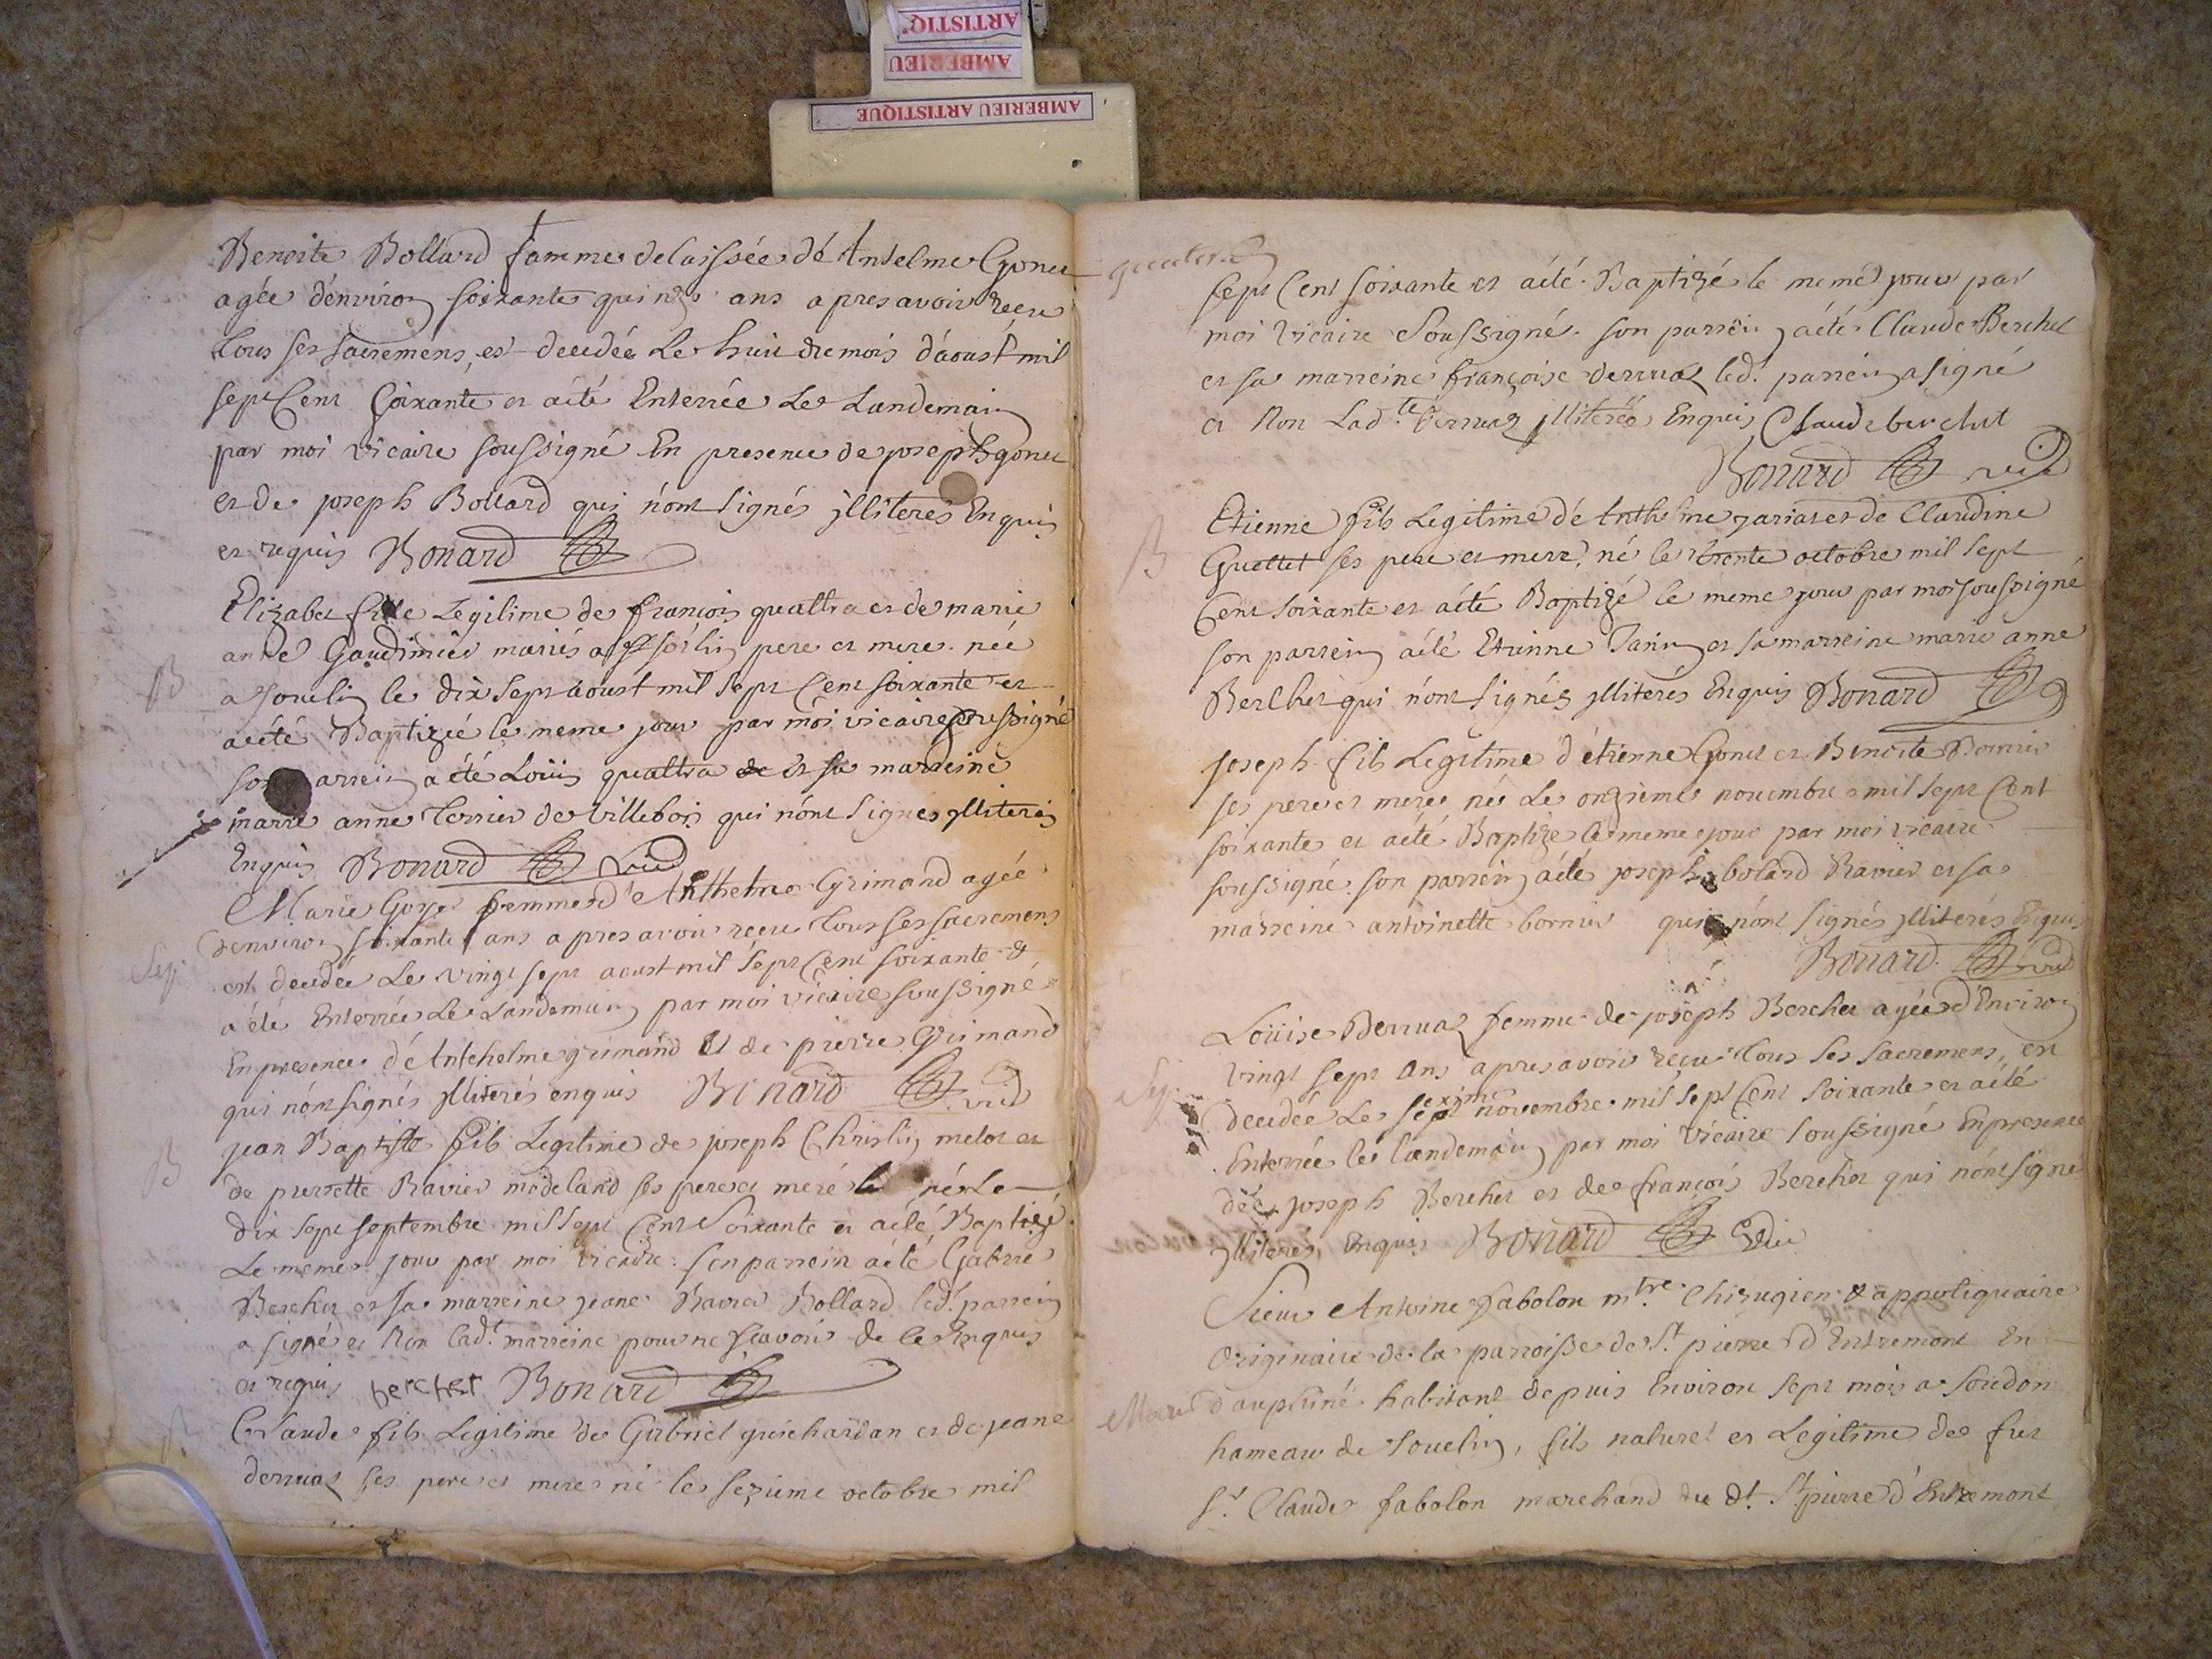 ARTISTIQ
AMBERIEU
AMBERIEU ARTISTIQUE
Benoite Bollard famme delaissée dé Antelme Gonet
agée d'environ soixante quinze ans apres avoir recu
tous ses sacremens, est decedée Le huit du mois d'aoust mil
sept Cent Soixante et a été Enterrée Le Landemain
par moi vicaire soussigné En presence de joseph gonet
et de joseph Bollard qui n'ont signés jlliterés Enquis
et requis Bonard
Elizabet fille Legitime de françois quattra et de marie
anne Gaudimier mariés a St sorlin pere et meres née
a souclin le dix sept aoust mil sept Cent soixante et
a été Baptizée le meme jour par moi vicaire soussigné
son parrein a été Loüis quattra et sa marreine
B
marie anne terrier de villebois qui n'ont signes jlliterés
Enquis Bonard vic
Marie Goyet femme d'Anthelme Grimand agée
d'environ soixante ans apres avoir reçeu tous ses sacremens
Sep.
est decedée Le vingt sept aoust mil sept Cent soixante &
a été Enterrée Le Landemain par moi vicaire soussigné
En presence d'Antehelme grimand Et de pierre Grimand
qui n'ont signés jlliterés enquis Bonard vic
jean Baptiste fils Legitime de joseph Christin melot et
B
de pierrette Ravier modeland ses pere et mere né Le
dix sept septembre mil sept Cent Soixante et a été Baptizé
Le meme jour par moi vicaire son parrein a été Gabriel
Berchet et sa marreine jeane Ravier Bollard led. parrein
a signé et Non lad.t marreine pour ne sçavoir de le Enquis
et requis berchet Bonard
B
Claude fils Legitime de Gabriel guichardan et de jeane
derruaz ses pere et mere né le sezieme octobre mil
sept Cent soixante et a été Baptizé le meme jour par
moi vicaire Soussigné son parrein a été Claude Berchet
et sa marreine françoise derruaz led. parrein a signé
et Non Lad.te derruaz jlliterée Enquis Claude berchet
Bonard vic
Etienne fils Legitime dé Anthelme jariat et de Claudine
B
Guettet ses pere et mere, né le trente octobre mil sept
Cent soixante et a été Baptizé le meme jour par moi soussigné
son parrein a été Etienne Janin et sa marreine marie anne
Berchet qui n'ont signés jlliterés Enquis Bonard
joseph fils Legitime d'étienne Gonet et Benoite Bornier
ses pere et mere né Le onzieme novembre mil sept Cent
soixante et a été Baptize le meme jour par moi vicaire
soussigné son parrein a été joseph bolard Ravier et sa
marreine antoinette bornier qui n'ont signés jlliterés Enquis
Bonard vic
Loüise Derruaz femme de joseph Berchet agée d'Environ
vingt sept ans apres avoir reçeu tous ses sacremens, est
Sep.
decedée Le novembre mil sept Cent soixante et a été
Enterrée le landemain par moi vicaire soussigné En presence
de joseph Berchet et de françois Berchet qui n'ont signé
jlliterés, Enquis Bonard vic
Sieur Antoine fabolon m.tre Chirugien & appotiquaire
Originaire de la parroisse de S.t pierre d'Entremont En
Mari
dauphiné habitant depuis Environ sept mois a soudon
hameau de souclin, fils naturel et Legitime de fut
S.r Claude fabolon marchand du d.t S.t pierre d'Entremont